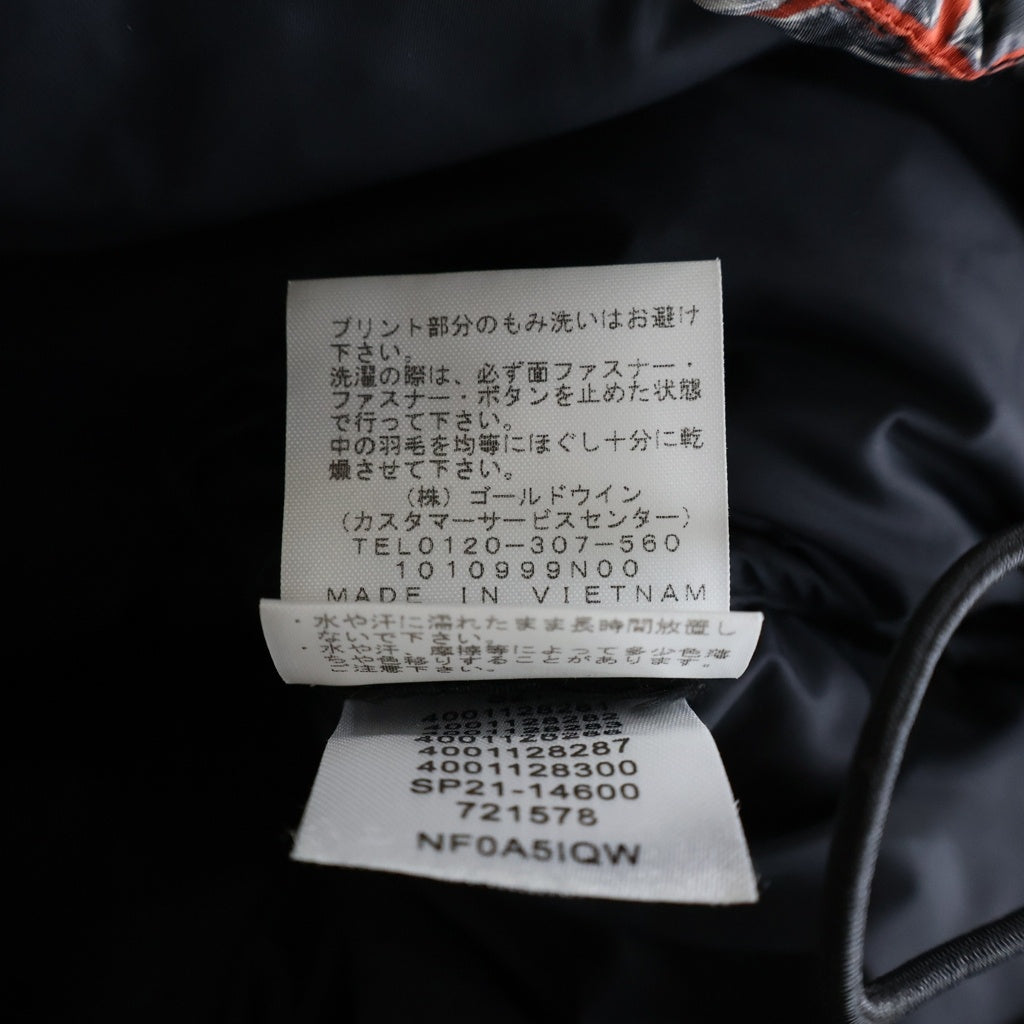 プリント部分のもみ洗いはお避け
下さい。
洗濯の際は、必ず面ファスナー・
ファスナー・ボタンを止めた状態
で行って下さい。
中の羽毛を均等にほぐし十分に乾
燥させて下さい。
(株)ゴールドウイン
(カスタマーサービスセンター)
TEL0120-307-560
1010999N00
MADE IN VIETNAM
・水や汗に濡れたまま長時間放置し
ないで下さい。
・水や汗、摩擦等によって多少色落
ちや色移りすることがあります。
ご注意下さい。
4001128287
4001128300
SP21-14600
721578
NF0A5IQW